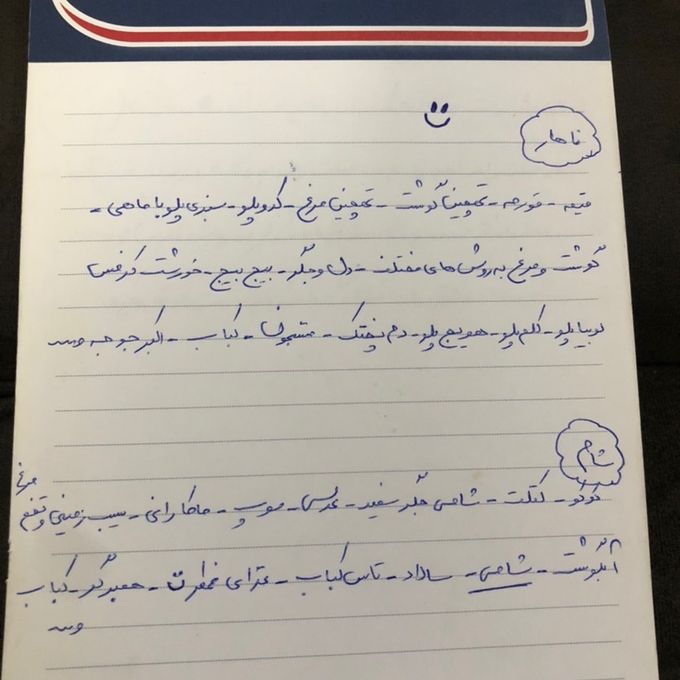 ناهار
قیمه - قورمه - تهچین گوشت - تهچین مرغ - کدو پلو - سبزی پلو با ماهی -
گوشت و مرغ به روش های مختلف - دل و جگر - بیج بیج - خورشت کرفس
لوبیا پلو - کلم پلو - هویج پلو - دم پختک - کباب - اکبر جوجه و...
شام
کوکو - کتلت - شامی جگر سفید - عدسی - سوپ - ماکارانی - سیب زمینی و تخم مرغ
آبگوشت - شامی - سالاد - تاس کباب - غذای - همبرگر - کباب
و...